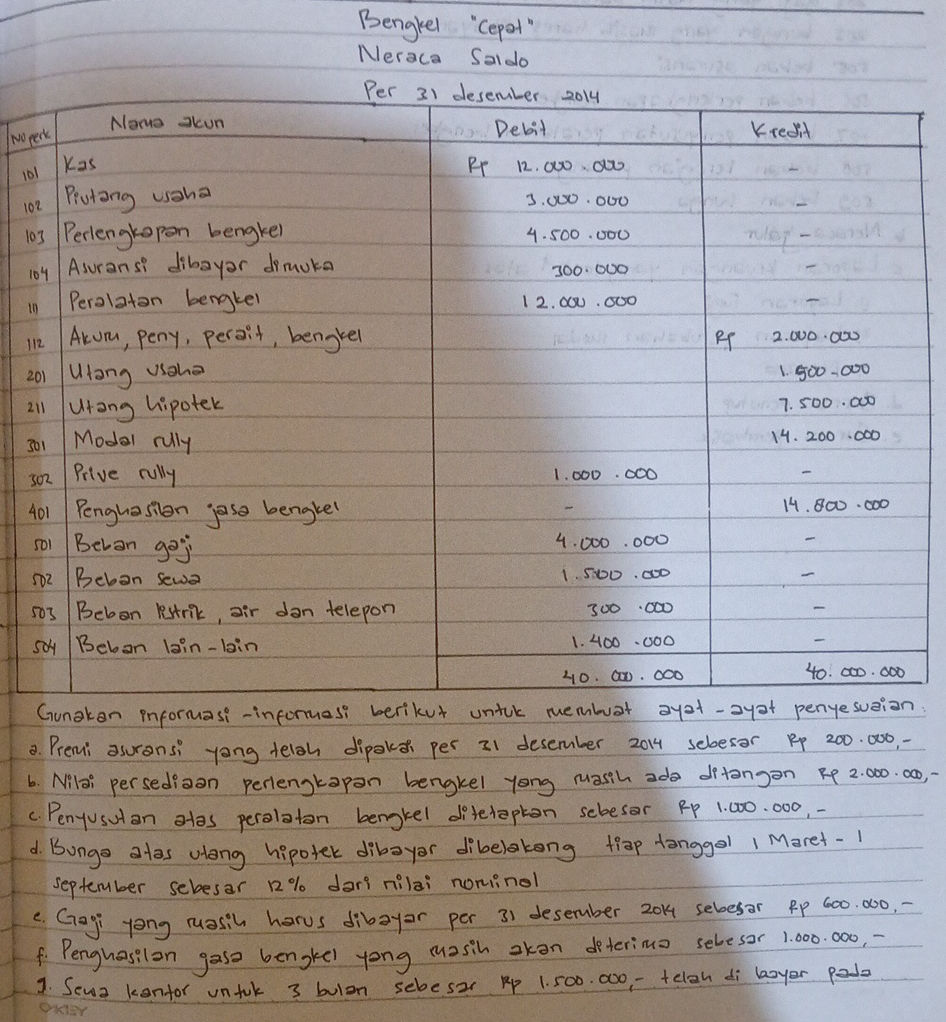 Bengkel "Cepat"
Neraca Saldo
Per 31 desember 2014
No perk Nama akun Debit Kredit
101 Kas Rp 12.000.000 -
102 Piutang usaha 3.000.000 -
103 Perlengkapan bengkel 4.500.000 -
104 Asuransi dibayar dimuka 300.000 -
111 Peralatan bengkel 12.000.000 -
112 Akum, peny, peralt, bengkel Rp 2.000.000
201 Utang usaha 1.500.000
211 Utang hipotek 7.500.000
301 Modal rully 14.200.000
302 Prive rully 1.000.000 -
401 Penghasilan jasa bengkel - 14.800.000
501 Beban gaji 4.000.000 -
502 Beban sewa 1.500.000 -
503 Beban listrik, air dan telepon 300.000 -
504 Beban lain-lain 1.400.000 -
40.000.000 40.000.000
Gunakan informasi-informasi berikut untuk membuat ayat-ayat penyesuaian:
a. Premi asuransi yang telah dipakai per 31 desember 2014 sebesar Rp 200.000,-
b. Nilai persediaan perlengkapan bengkel yang masih ada ditangan Rp 2.000.000,-
c. Penyusutan atas peralatan bengkel ditetapkan sebesar Rp 1.000.000,-
d. Bunga atas utang hipotek dibayar dibelakang tiap tanggal 1 Maret-1
september sebesar 12% dari nilai nominal
e. Gaji yang masih harus dibayar per 31 desember 2014 sebesar Rp 600.000,-
f. Penghasilan jasa bengkel yang masih akan diterima sebesar 1.000.000,-
g. Sewa kantor untuk 3 bulan sebesar Rp 1.500.000,- telah di bayar pada
OKEY